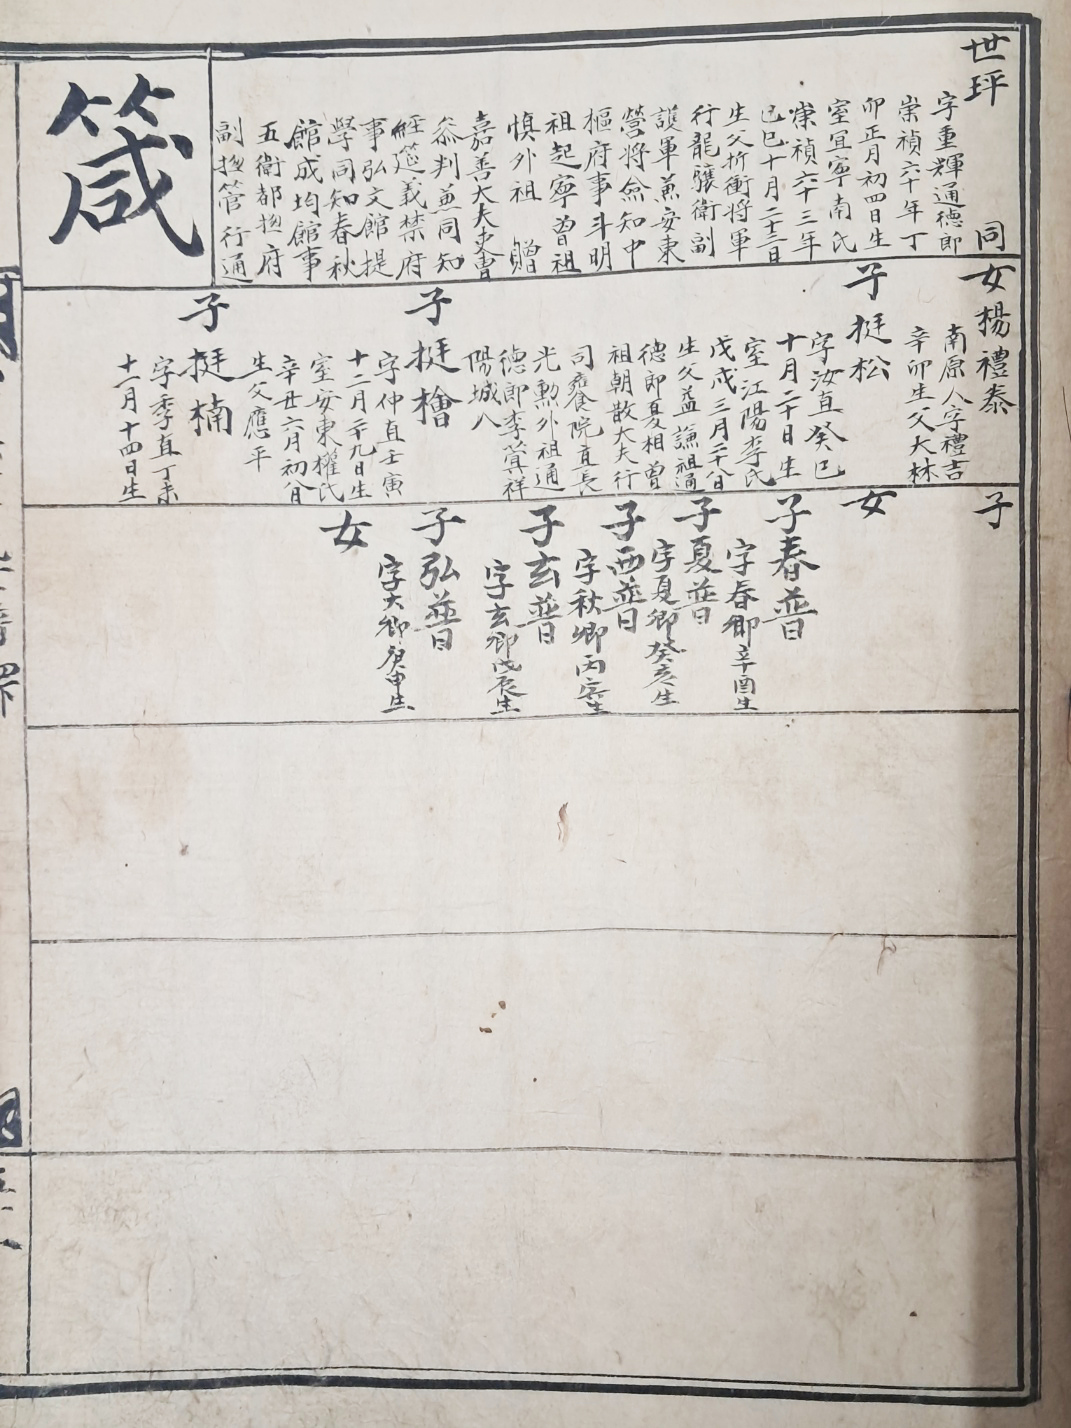 世坪 同
字重輝通德郎
崇禎六十年丁
卯正月初四日生
室宜寧南氏
崇禎六十三年
己巳十月二十三日
生父折衝將軍
行龍驤衛副
護軍兼安東
營將僉知中
樞府事斗明
祖起寧曾祖
慎外祖 贈
嘉善大夫吏曹
叅判兼同知
經筵義禁府
事弘文館提
學同知春秋
館成均館事
五衛都摠府
副摠管行通
箴
女揚禮泰
南原人字禮吉
辛卯生父大林
子挺松
字汝直癸巳
十月二十日生
室江陽李氏
戊戌三月二十八日
生父益謙祖通
德郎夏相曾
祖朝散大夫行
司饔院直長
光勲外祖通
德郎李箕祥
陽城人
子挺檜
字仲直壬寅
十二月二十九日生
室安東權氏
辛丑六月初八日
生父應平
子挺楠
字季直丁未
十一月十四日生
子
女
子春普
字春卿辛酉生
子夏普
字夏卿癸亥生
子西普
字秋卿丙寅生
子玄普
字玄卿戊辰生
子弘普
字大卿庚申生
女